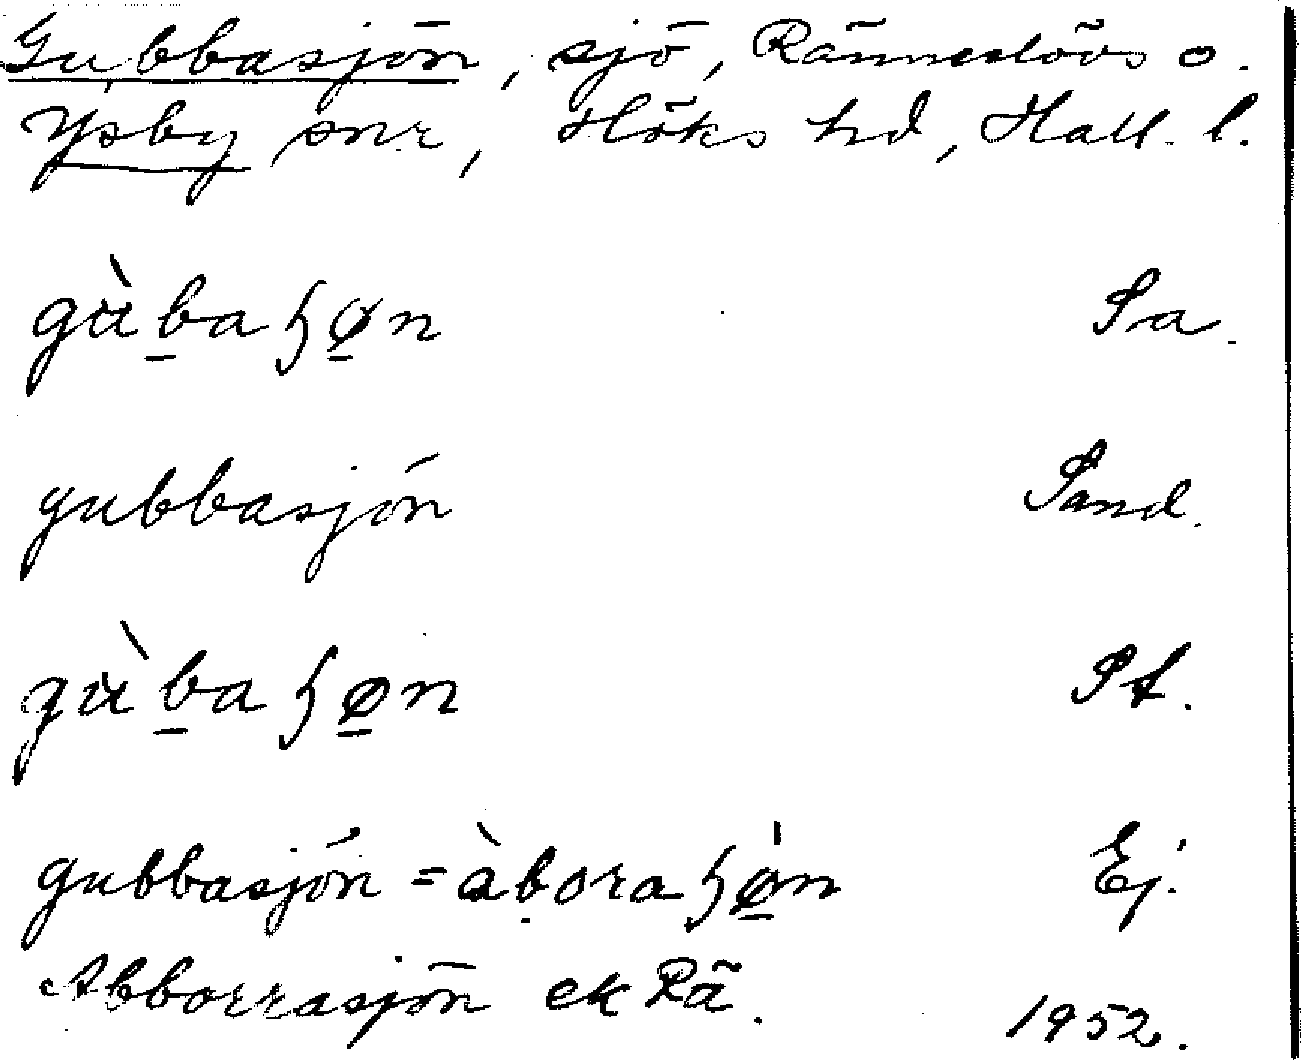 Gubbasjön, sjö, Ränneslövs o.
Ysby snr, Höks hd, Hall. l.
gù̈b̲aɧø̲n Sa.
gubbasjön Sand.
gù̈b̲aɧø̲n St.
gubbasjön = àboraɧø̲̀n Ej.
Abborrasjön ek Rä. 1952.